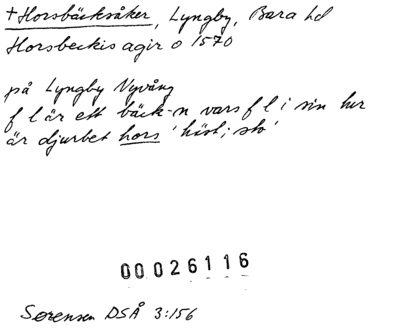 +Horsbäcksåker, Lyngby, Bara hd
Horsbeckis agir o 1570
på Lyngby Nyvång
f l är ett bäck-n vars f l i sin tur
är djurbet hors 'häst; sto'
00026116
Sørensen DSÅ 3:156